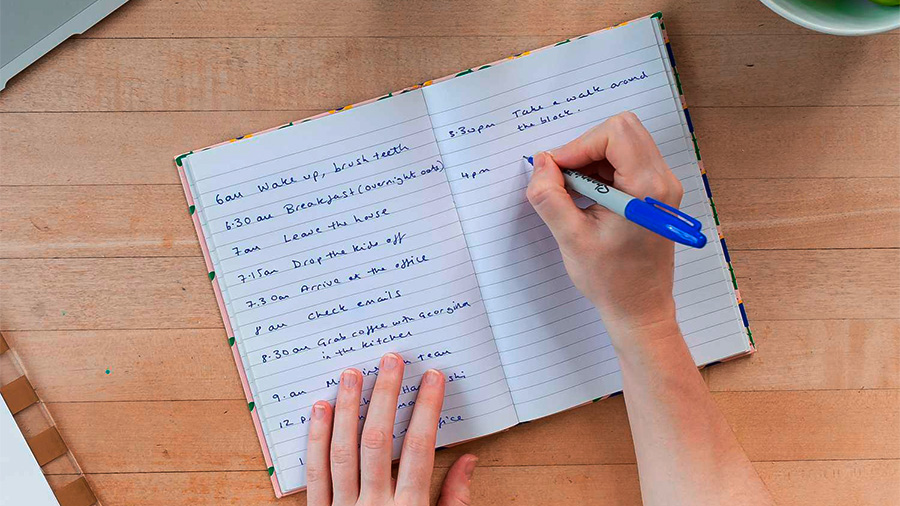 6am Wake up, brush teeth
6.30am Breakfast (overnight oats)
7am Leave the house
7.15am Drop the kids off
7.30am Arrive at the office
8am Check emails
8.30am Grab coffee with Georgina
in the kitchen
9.am Team
12
3.30pm Take a walk around
the block.
4pm